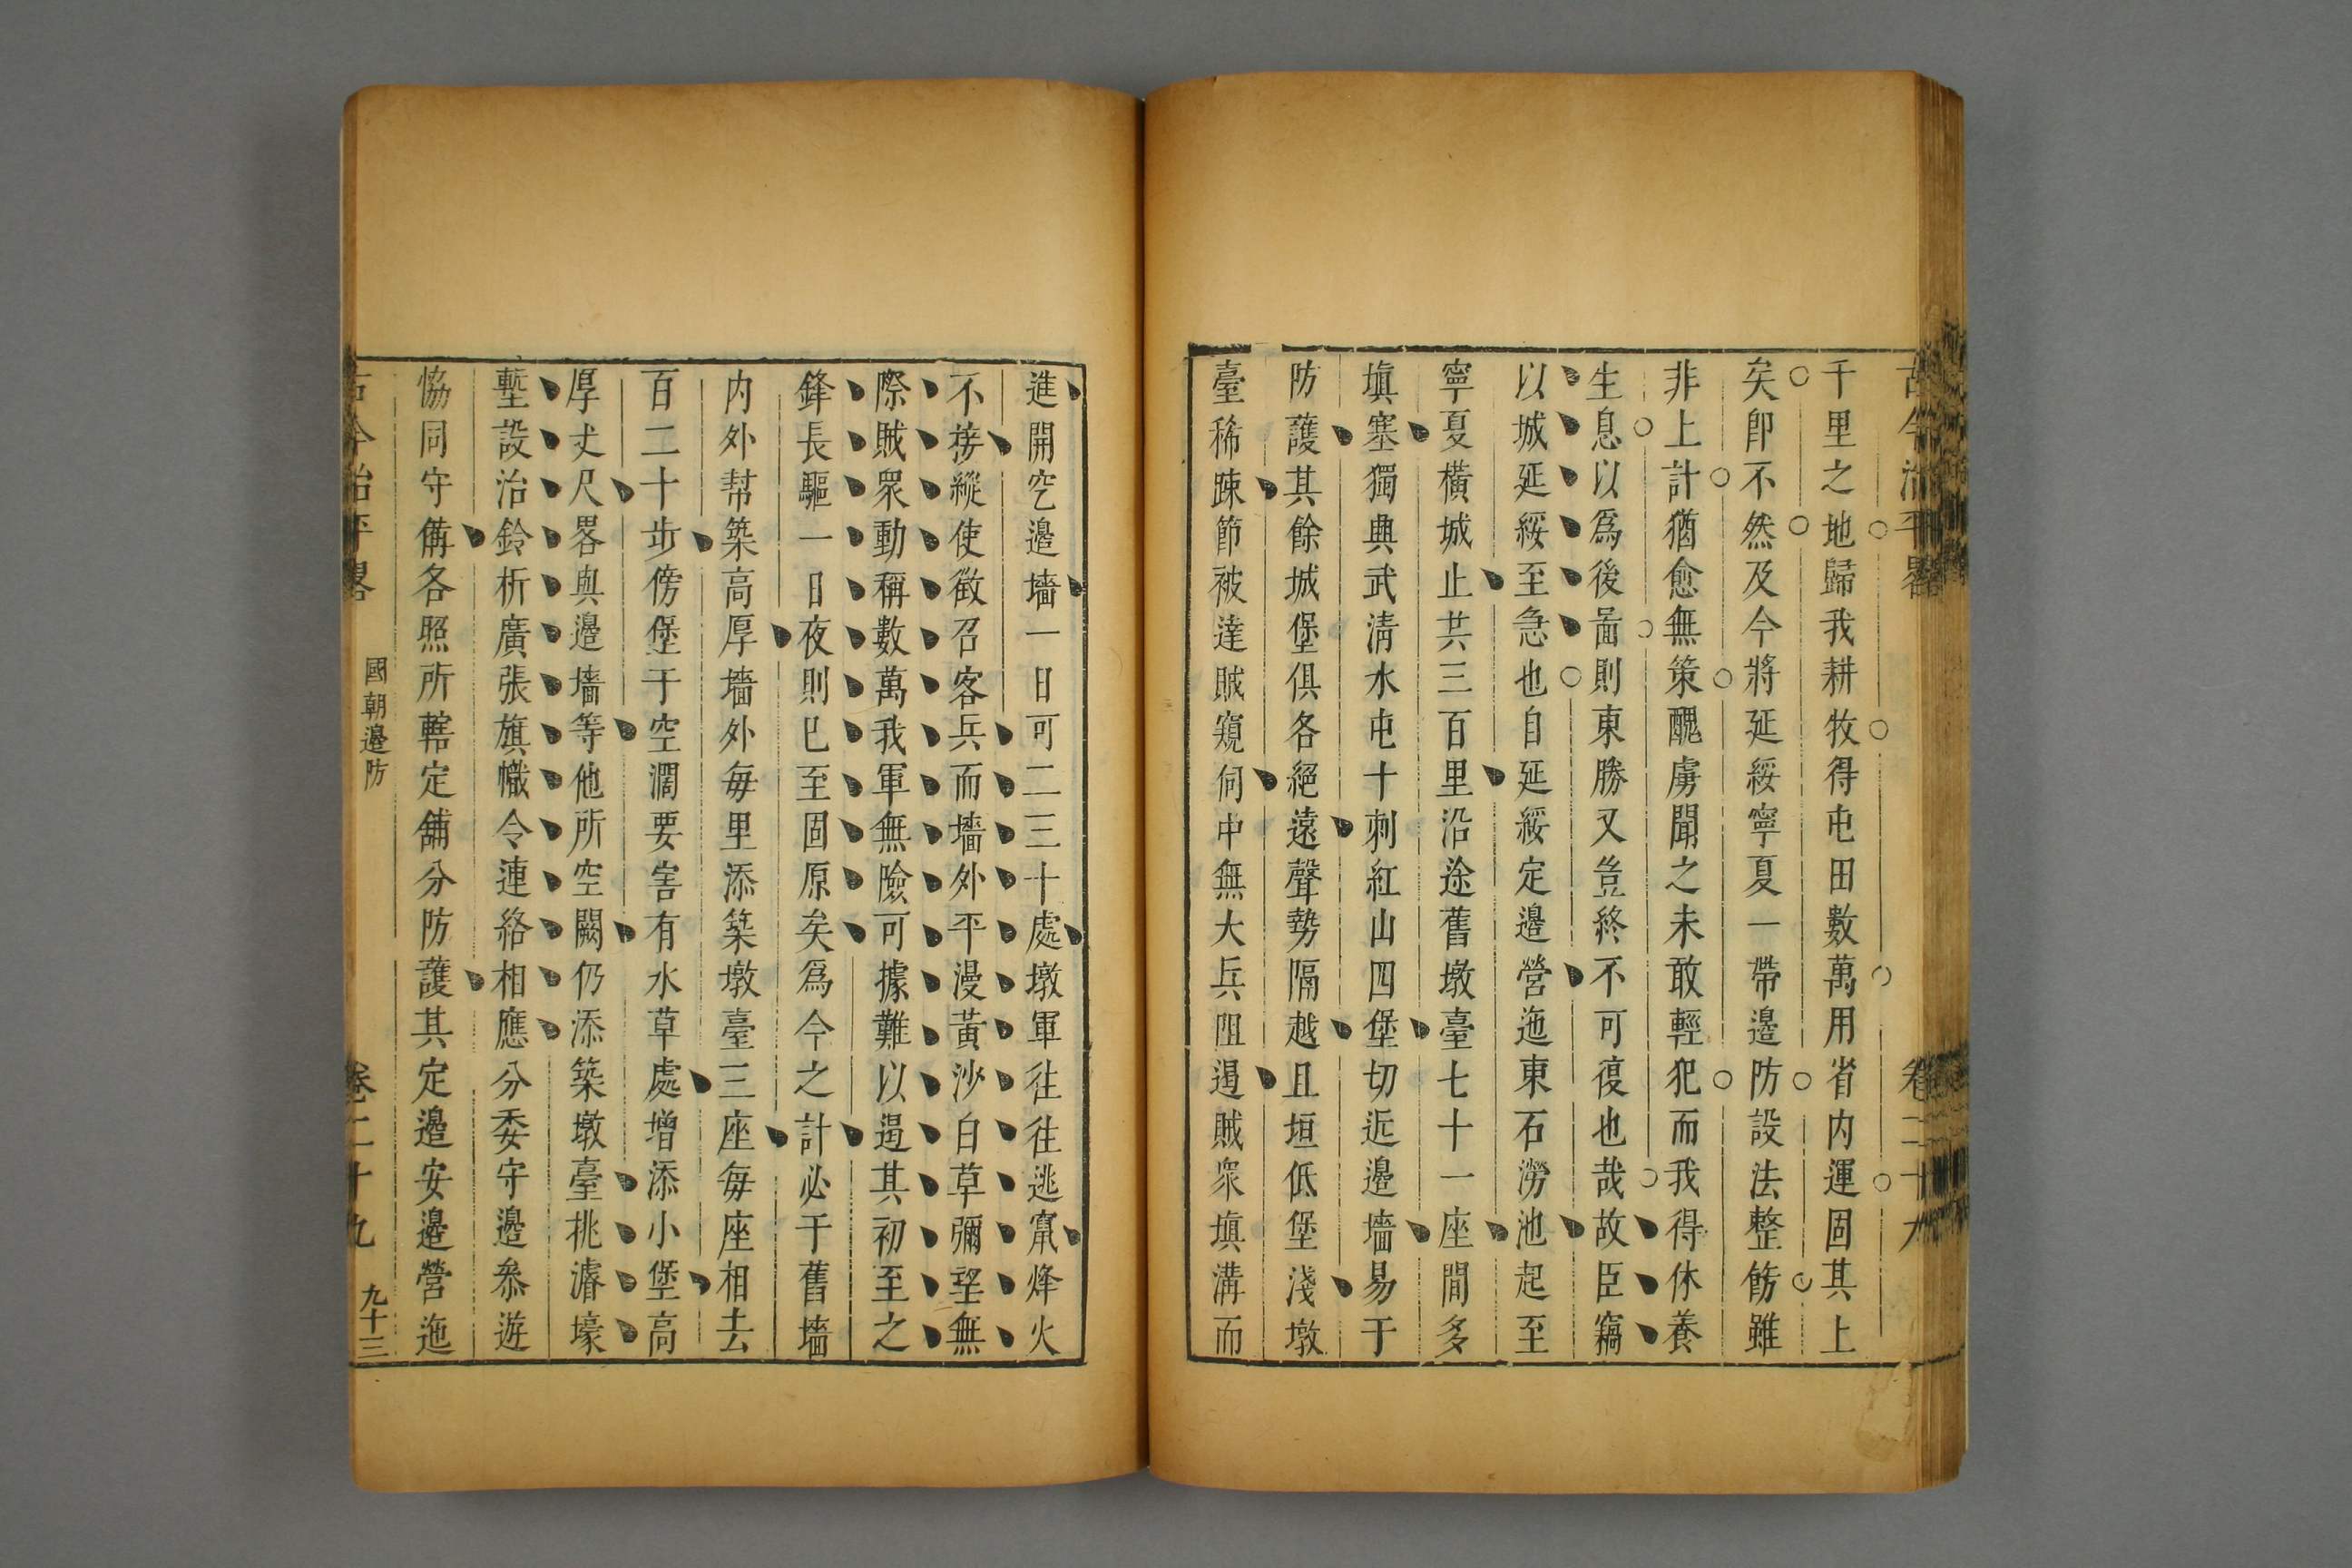 古今治平畧 卷二十九
千里之地歸我耕牧得屯田數萬用省內運固其上
矣卽不然及今將延綏寧夏一帶邊防設法整飭雖
非上計猶愈無策醜虜聞之未敢輕犯而我得休養
生息以爲後啚則東勝又豈終不可復也哉故臣竊
以城延綏至急也自延綏定邊營迤東石澇池起至
寧夏橫城止共三百里沿途舊墩臺七十一座間多
塡塞獨興武清水屯十刺紅山四堡切近邊墻易于
防護其餘城堡俱各絕遠聲勢隔越且垣低堡淺墩
臺稀踈節被達賊窺伺中無大兵阻遏賊衆塡溝而
進開空邊墻一日可二三十處墩軍往往逃竄烽火
不接縱使徵召客兵而墻外平漫黃沙白草彌望無
際賊衆動稱數萬我軍無險可據難以遏其初至之
鋒長驅一日夜則巳至固原矣爲今之計必于舊墻
内外幇築高厚墻外每里添築墩臺三座每座相去
百二十步傍堡于空濶要害有水草處增添小堡高
厚丈尺畧與邊墻等他所空闕仍添築墩臺挑濬壕
塹設治鈴柝廣張旗幟令連絡相應分委守邊叅遊
協同守備各照所轄定舖分防護其定邊安邊營迤
古今治平畧 國朝邊防 卷二十九 九十三